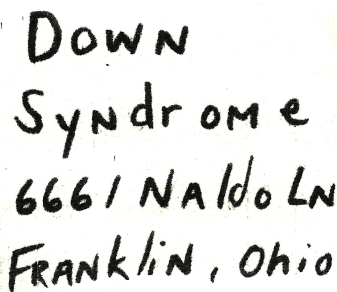 Down
Syndrome
6661 Naldo Ln
Franklin, Ohio